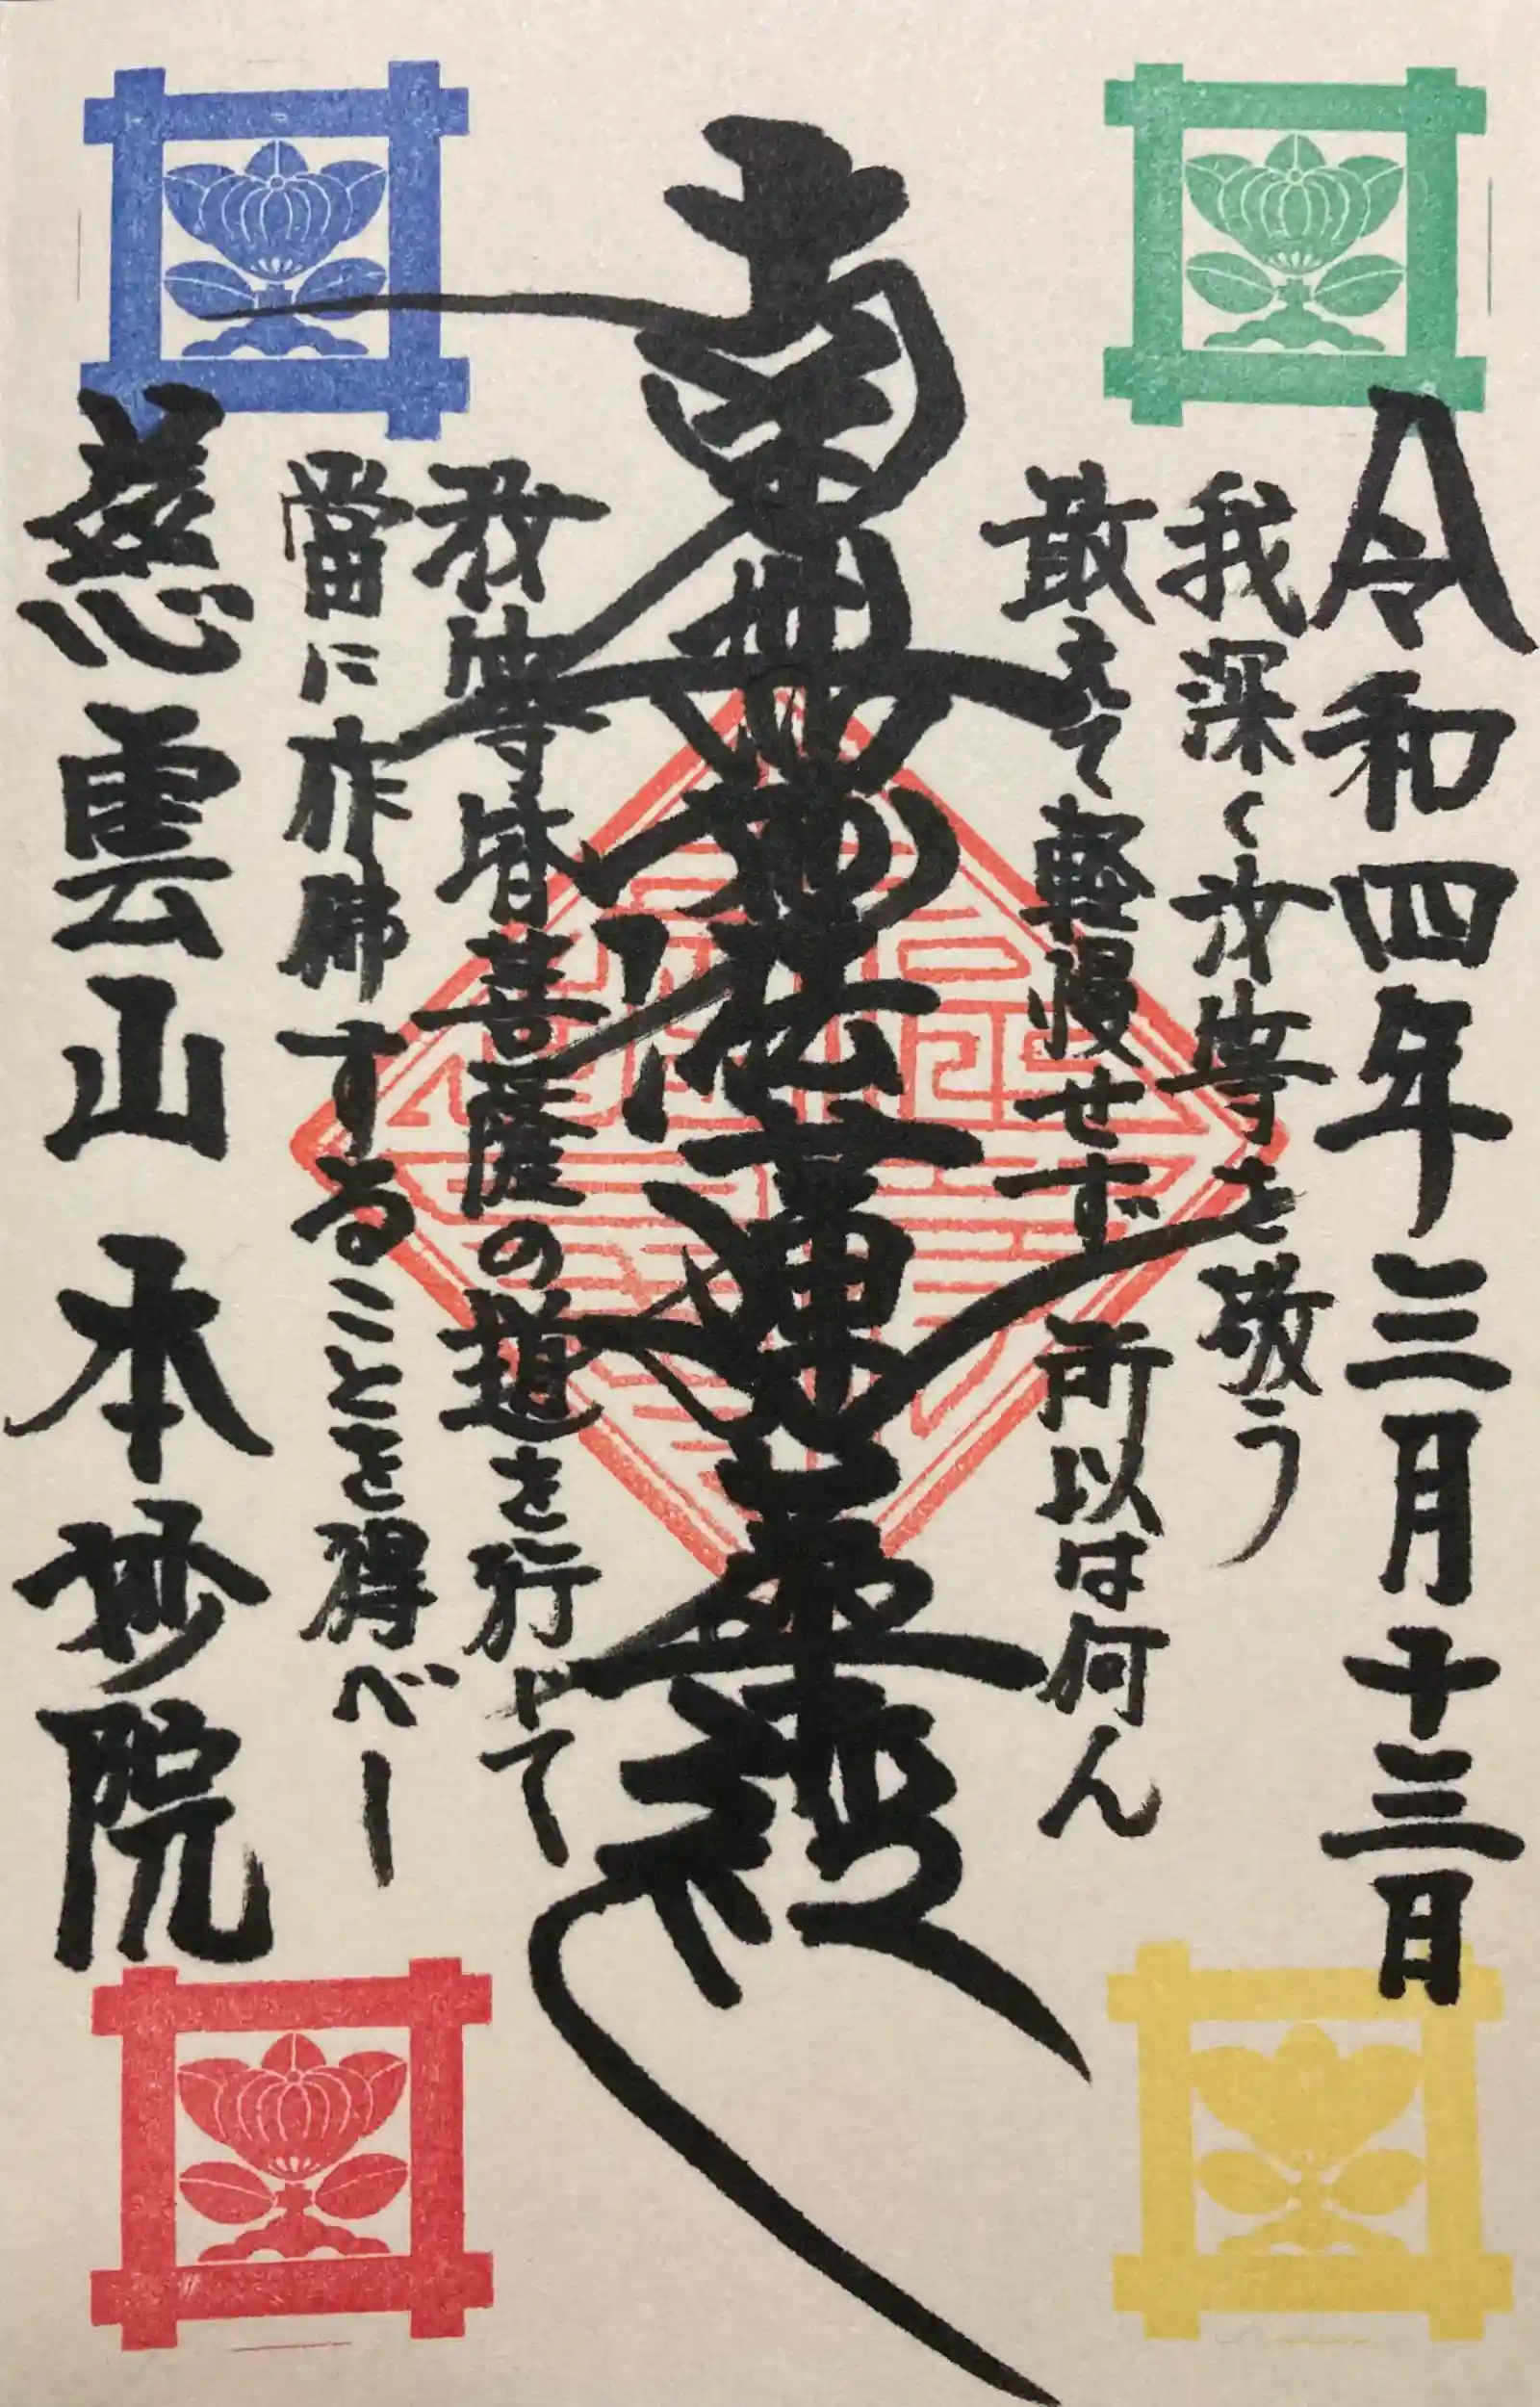 令和四年三月十三日
我深く汝等を敬う
敢えて軽慢せず 所以は何ん
南無妙法蓮華経
汝等皆菩薩の道を行じて
當に作佛することを得べし
慈雲山 本妙院